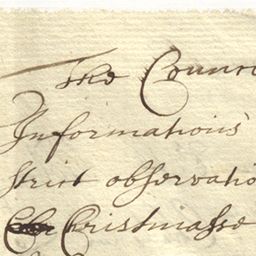 The Counc
Informations
strict observatio
Christmasse